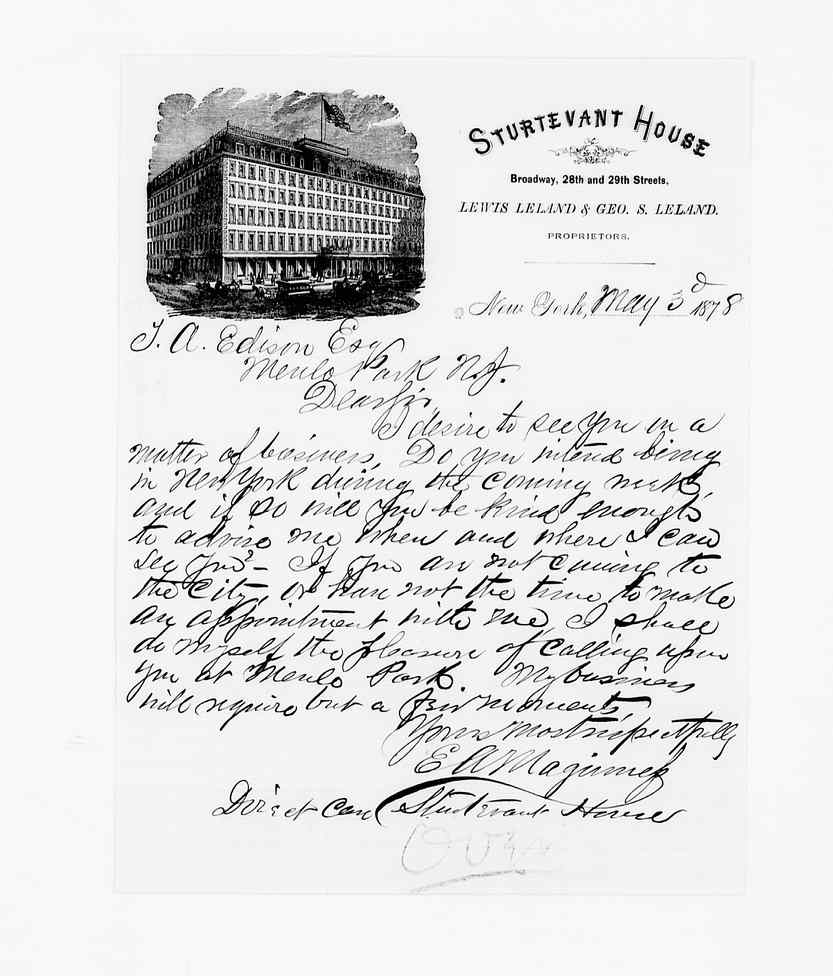 STURTEVANT HOUSE
Broadway, 28th and 29th Streets,
LEWIS LELAND & GEO. S. LELAND.
PROPRIETORS.
New York, May 3d 1878
T. A. Edison Esq
Menlo Park N.J.
Dear Sir
I desire to see you on a
matter of business, Do you intend being
in New York during the coming week,
and if so will you be kind enough
to advise me when and where I can
see you? – If you are not coming to
the City, or have not the time to make
an appointment with me, I shall
do myself the pleasure of calling upon
you at Menlo Park. My business
will require but a few moments,
Yours most respectfully
E A
Direct Care Sturtevant House
Over